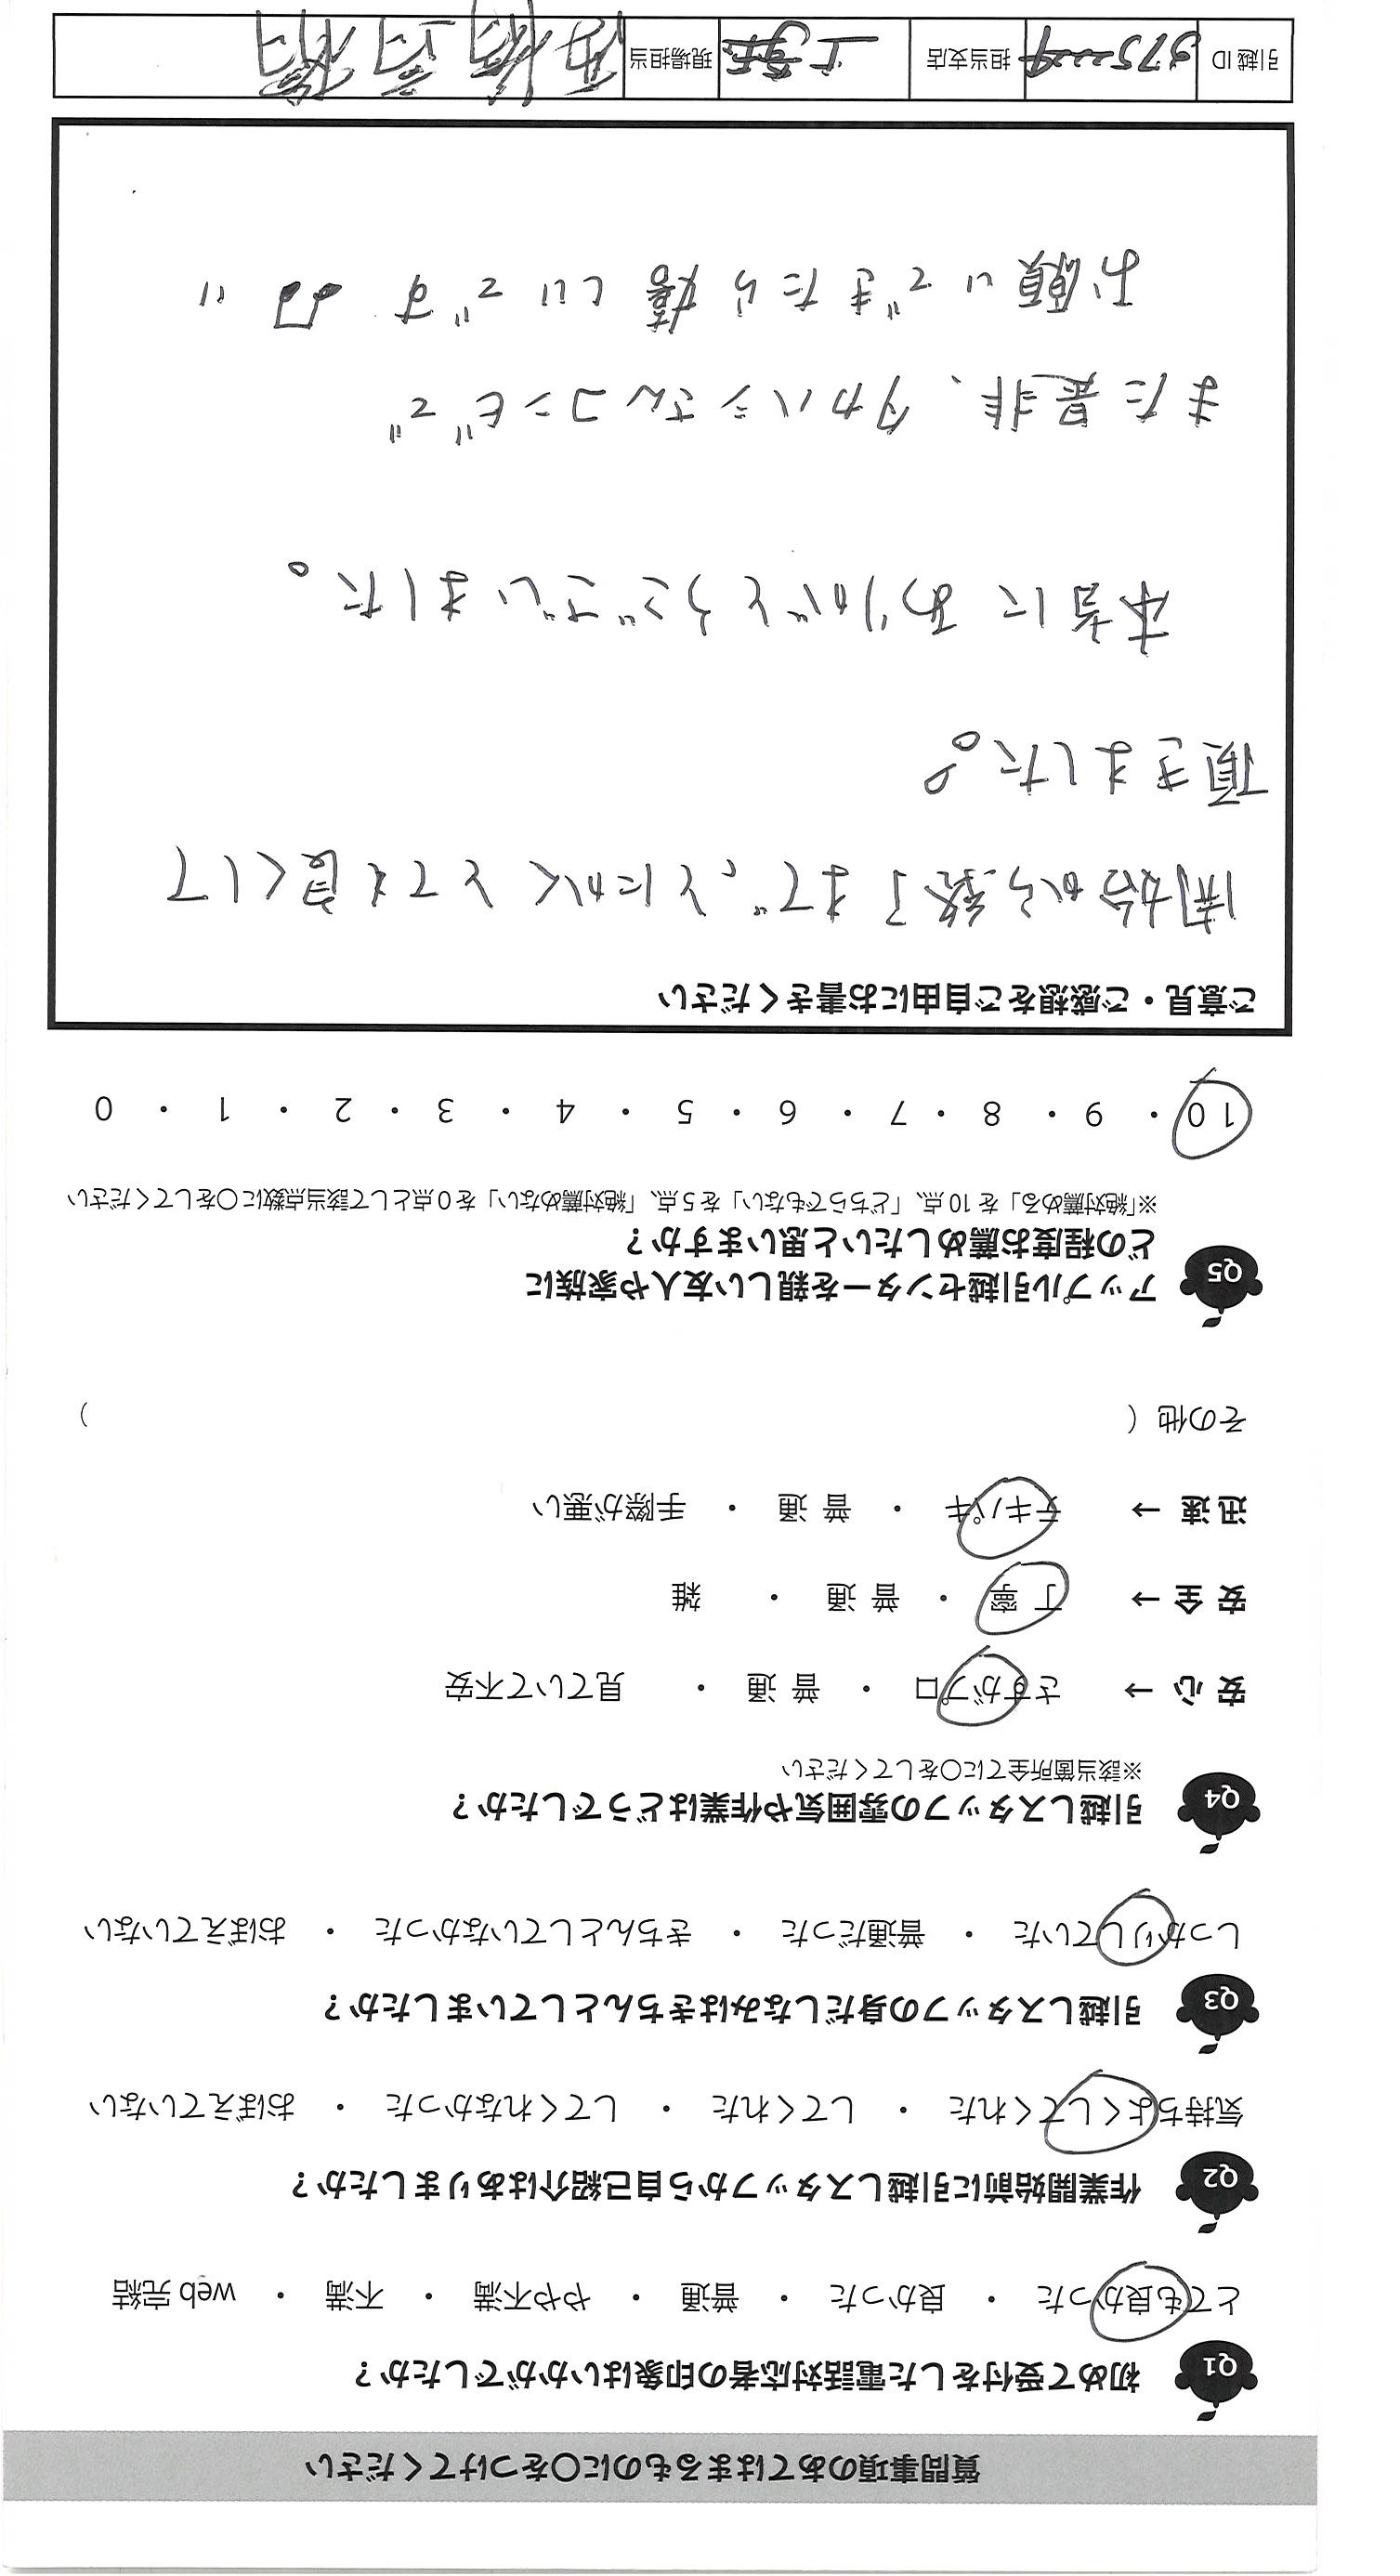 質問事項のあてはまるものに○をつけてください
Q1 初めて受付をした電話対応者の印象はいかがでしたか？
とても良かった ・ 良かった ・ 普通 ・ やや不満 ・ 不満 ・ web 完結
Q2 作業開始前に引越しスタッフから自己紹介はありましたか？
気持ちよくしてくれた ・ してくれた ・ してくれなかった ・ おぼえていない
Q3 引越しスタッフの身だしなみはきちんとしていましたか？
しっかりしていた ・ 普通だった ・ きちんとしていなかった ・ おぼえていない
Q4 引越しスタッフの雰囲気や作業はどうでしたか？
※該当箇所全てに○をしてください
安心 → さすがプロ ・ 普通 ・ 見ていて不安
安全 → 丁寧 ・ 普通 ・ 雑
迅速 → テキパキ ・ 普通 ・ 手際が悪い
その他（ ）
Q5 アップル引越センターを親しい友人や家族に
どの程度お薦めしたいと思いますか？
※「絶対薦める」を 10 点、「どちらでもない」を 5 点、「絶対薦めない」を 0 点として該当点数に○をしてください
10 ・ 9 ・ 8 ・ 7 ・ 6 ・ 5 ・ 4 ・ 3 ・ 2 ・ 1 ・ 0
ご意見・ご感想をご自由にお書きください
開始から終了まで、とにかくとても良くして
頂きました。
本当にありがとうございました。
また是非、タカハシさんコンビで
お願いできたら嬉しいです
引越 ID 担当支店 現場担当